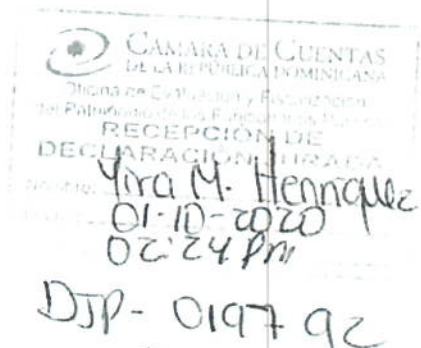 CAMARA DE CUENTAS
DE LA REPÚBLICA DOMINICANA
Oficina de Evaluación y Fiscalización
del Patrimonio de los Funcionarios Públicos
RECEPCIÓN DE
DECLARACIÓN JURADA
Yira M. Henríquez
01-10-2020
02:24 pm
DJP- 019792